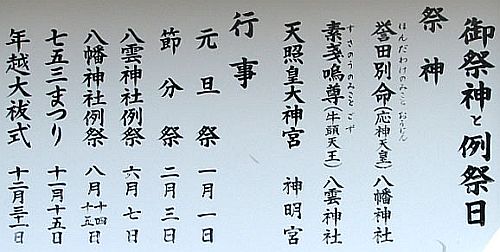 御祭神と例祭日
祭神
誉田別命(応神天皇)八幡神社
ほんだわけのみこと おうじん
素戔嗚尊(牛頭天王)八雲神社
すさのうのみこと ごず
天照皇大神宮 神明宮
行事
元旦祭 一月一日
節分祭 二月三日
八雲神社例祭 六月七日
八幡神社例祭 八月十四十五日
七五三まつり 十一月十五日
年越大祓式 十二月三十一日